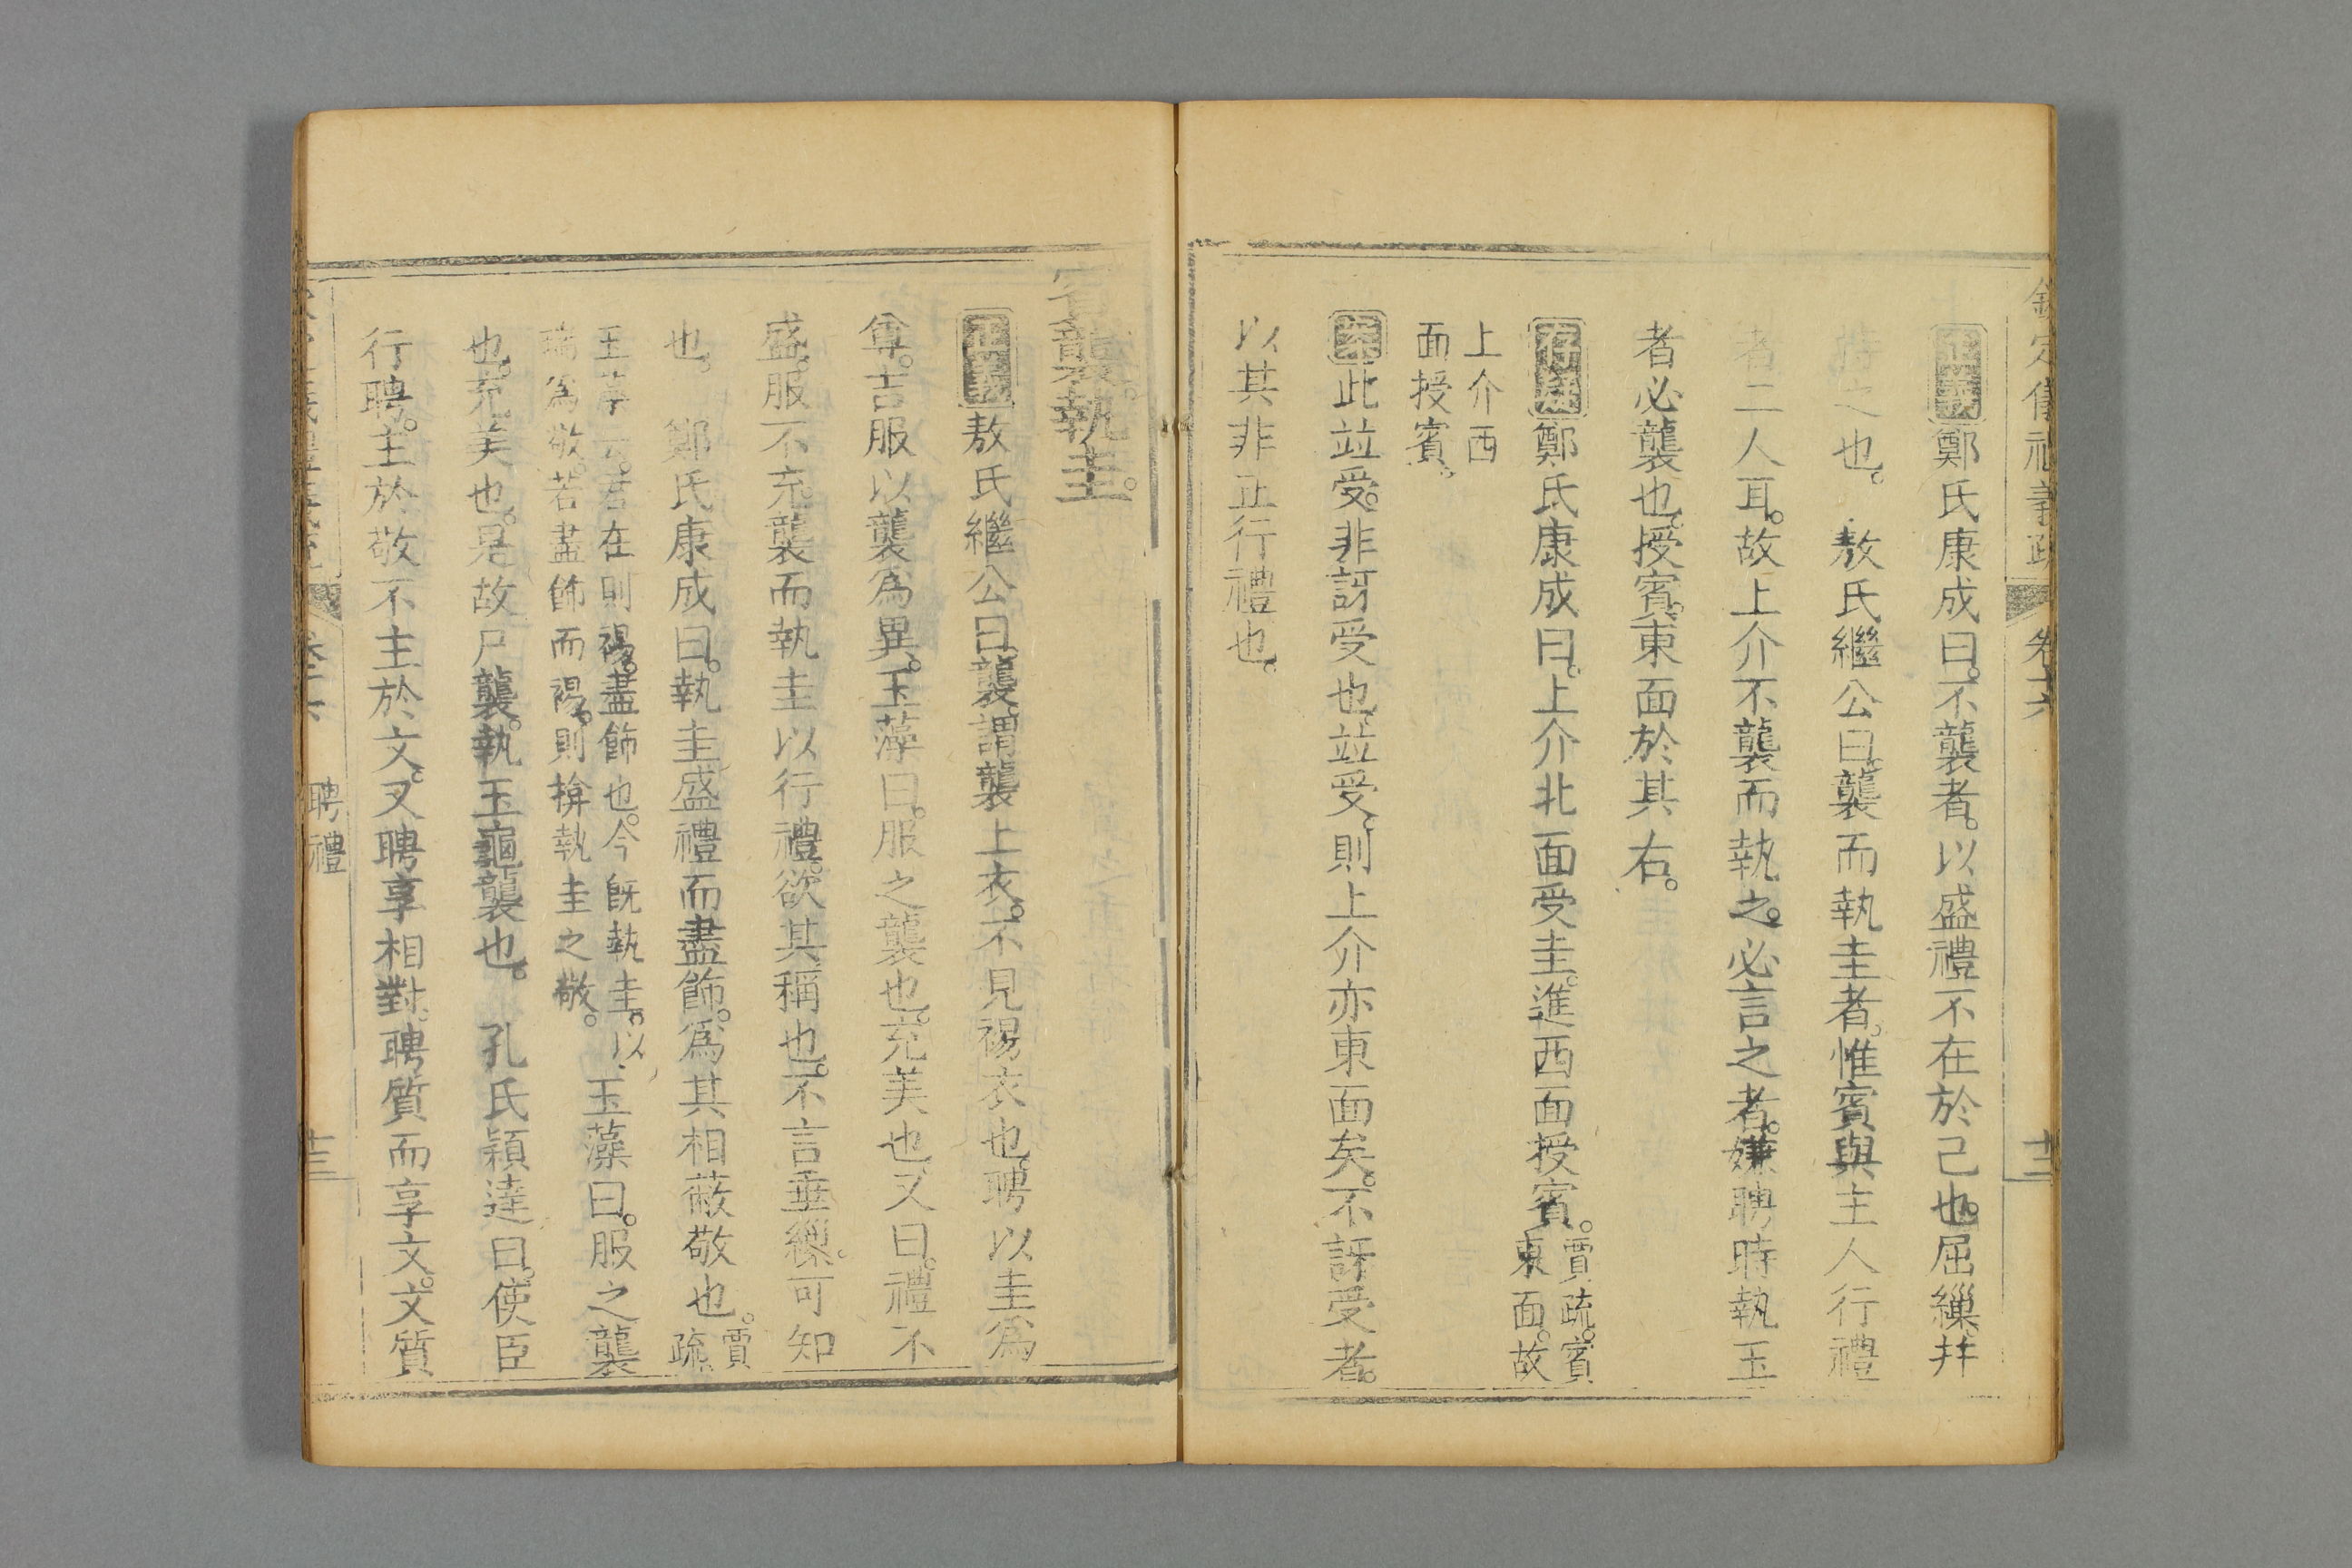 欽定儀禮義疏 卷十六 十三
正義鄭氏康成曰。不襲者。以盛禮不在於己也。屈繅。幷
持之也。 敖氏繼公曰。襲而執圭者。惟賓與主人行禮
者二人耳。故上介不襲而執之。必言之者。嫌聘時執玉
者必襲也。授賓。東面於其右。
存疑鄭氏康成曰。上介北面受圭。進西面授賓。賈疏。賓東面。故
上介西面授賓。
案此竝受。非訝受也。竝受。則上介亦東面矣。不訝受者。
以其非正行禮也。
賓襲。執圭。
正義敖氏繼公曰。襲。謂襲上衣。不見裼衣也。聘以圭爲
尊。吉服以襲爲異。玉藻曰。服之襲也。充美也。又曰。禮不
盛。服不充。襲而執圭以行禮。欲其稱也。不言垂繅。可知
也。 鄭氏康成曰。執圭盛禮而盡飾。爲其相蔽敬也。賈疏。
玉藻云。君在則裼。盡飾也。今旣執圭。以瑞爲敬。若盡飾而裼。則揜執圭之敬。 玉藻曰。服之襲
也。充美也。是故尸襲。執玉龜襲也。 孔氏穎達曰。使臣
行聘。主於敬。不主於文。又聘享相對。聘質而享文。文質
聘禮 十三